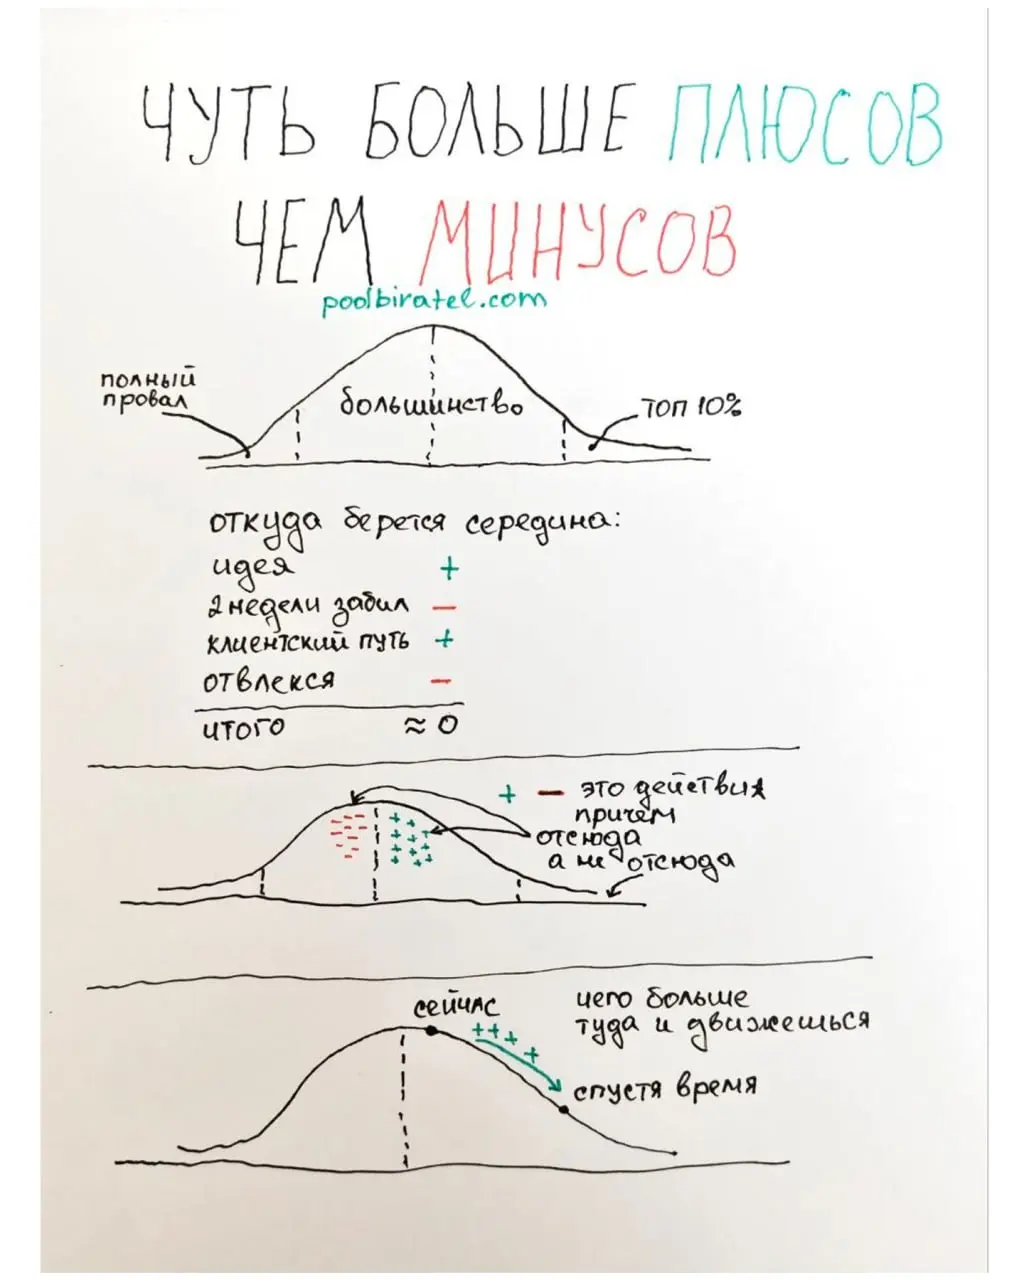 ЧУТЬ БОЛЬШЕ ПЛЮСОВ
ЧЕМ МИНУСОВ
poolbiratel.com
полный
провал
большинство
ТОП 10%
откуда берется середина:
идея +
2 недели забил −
клиентский путь +
отвлекся −
итого ≈ 0
+ − это действия
причем
отсюда
а не отсюда
сейчас
++++
чего больше
туда и движешься
спустя время